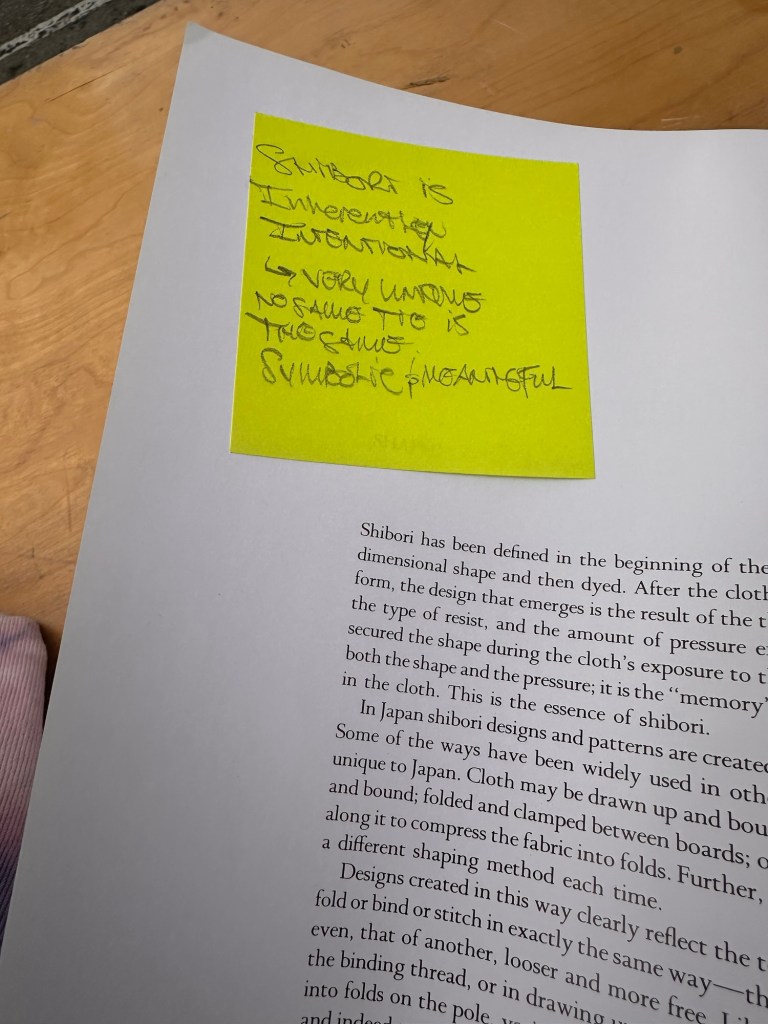 SHIBORI is
Inherently
INTENTIONAL
↳ VERY UNIQUE
NO SAME TIE is
THE SAME.
SYMBOLIC & MEANINGFUL
Shibori has been defined in the beginning of the
dimensional shape and then dyed. After the cloth
form, the design that emerges is the result of the t
the type of resist, and the amount of pressure e
secured the shape during the cloth's exposure to t
both the shape and the pressure; it is the "memory"
in the cloth. This is the essence of shibori.
In Japan shibori designs and patterns are create
Some of the ways have been widely used in oth
unique to Japan. Cloth may be drawn up and bou
and bound; folded and clamped between boards; o
along it to compress the fabric into folds. Further,
a different shaping method each time.
Designs created in this way clearly reflect the t
fold or bind or stitch in exactly the same way—th
even, that of another, looser and more free. Li
the binding thread, or in drawing
into folds on the pole,
and indeed